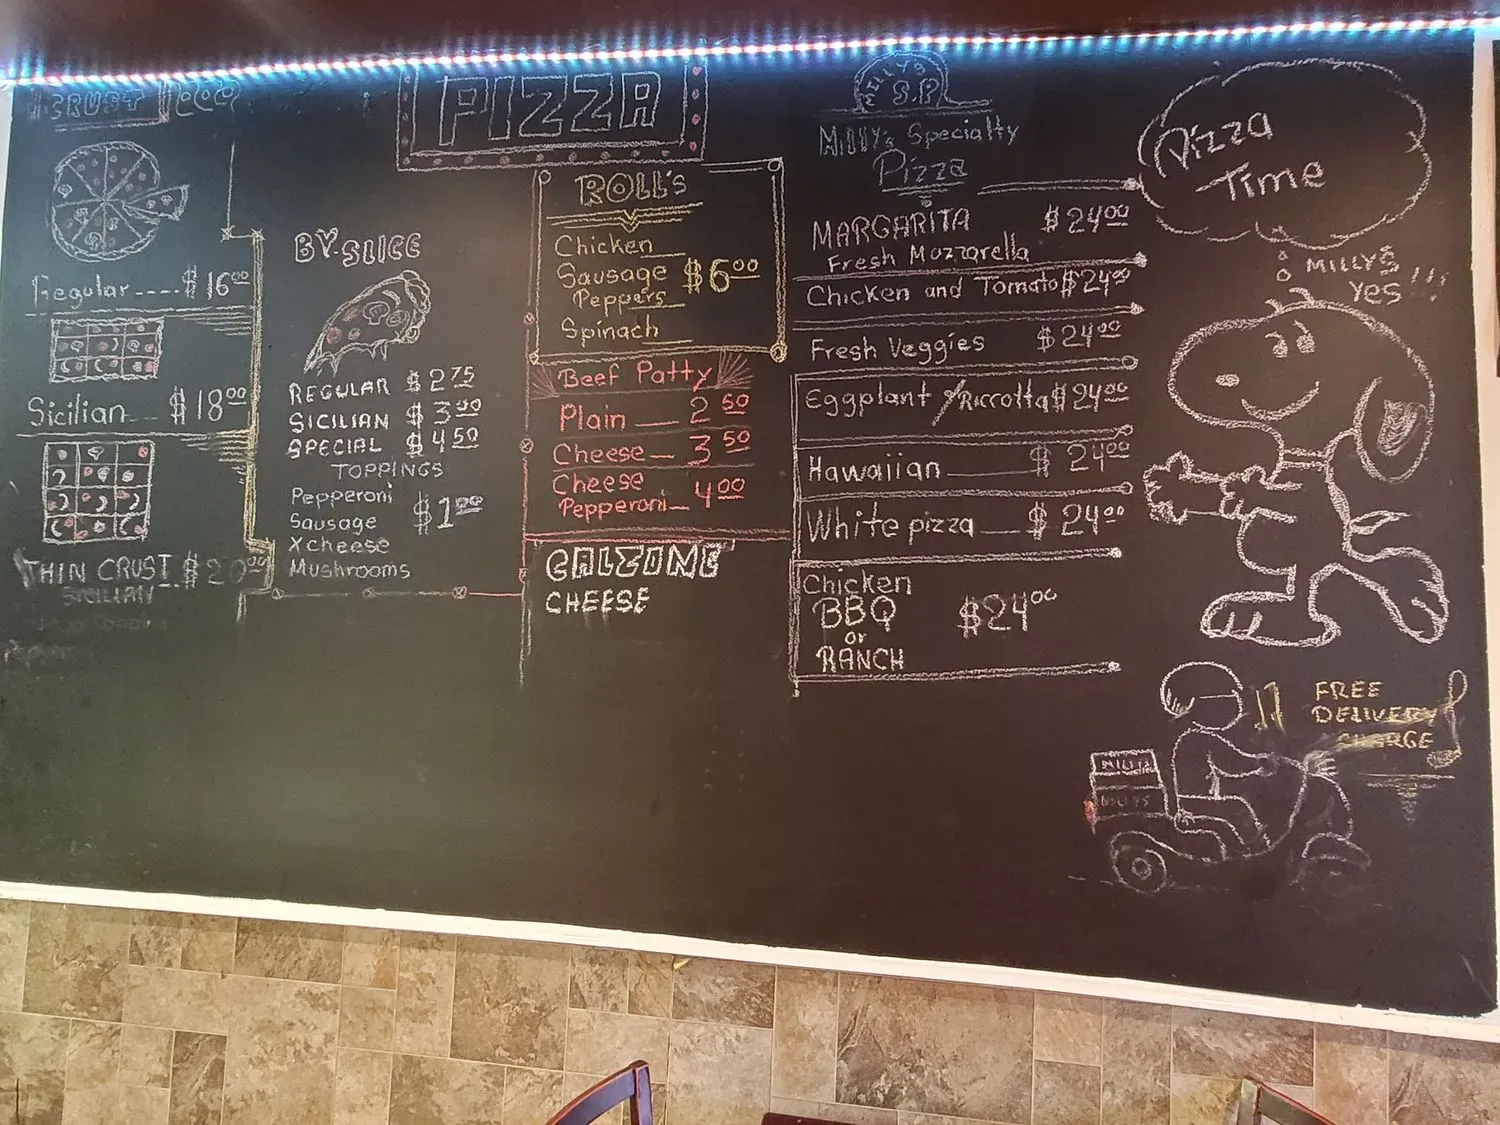 CRUST
PIZZA
Regular $16.00
Sicilian $18.00
THIN CRUST $20.00
SICILIAN
BY.SLICE
REGULAR $2.75
SICILIAN $3.00
SPECIAL $4.50
TOPPINGS
Pepperoni
Sausage $1.00
Xcheese
Mushrooms
ROLL'S
Chicken
Sausage $6.00
Peppers
Spinach
Beef Patty
Plain 2.50
Cheese 3.50
Cheese
Pepperoni 4.00
CALZONE
CHEESE
MILLY'S
S.P.
Milly's Specialty
Pizza
MARGARITA $24.00
Fresh Mozzarella
Chicken and Tomato $24.00
Fresh Veggies $24.00
Eggplant /Riccotta $24.00
Hawaiian $24.00
White pizza $24.00
Chicken
BBQ $24.00
or
RANCH
Pizza
Time
MILLYS
Yes!!!
FREE
DELIVERY
CHARGE
MILLYS
MILLYS